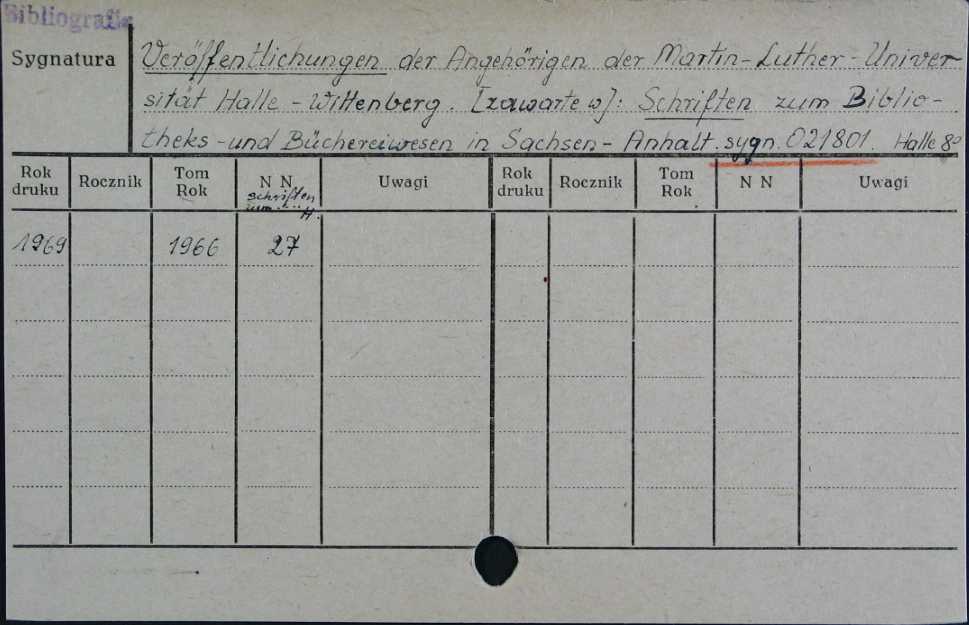 Bibliografie
Sygnatura
Veröffentlichungen der Angehörigen der Martin-Luther-Univer-
sität Halle-Wittenberg. [zawarte w]: Schriften zum Biblio-
theks-und Büchereiwesen in Sachsen-Anhalt. sygn. 021801. Halle 8°
Rok druku Rocznik Tom Rok N N Uwagi Rok druku Rocznik Tom Rok N N Uwagi
schriften
zum H.
1969 1966 27